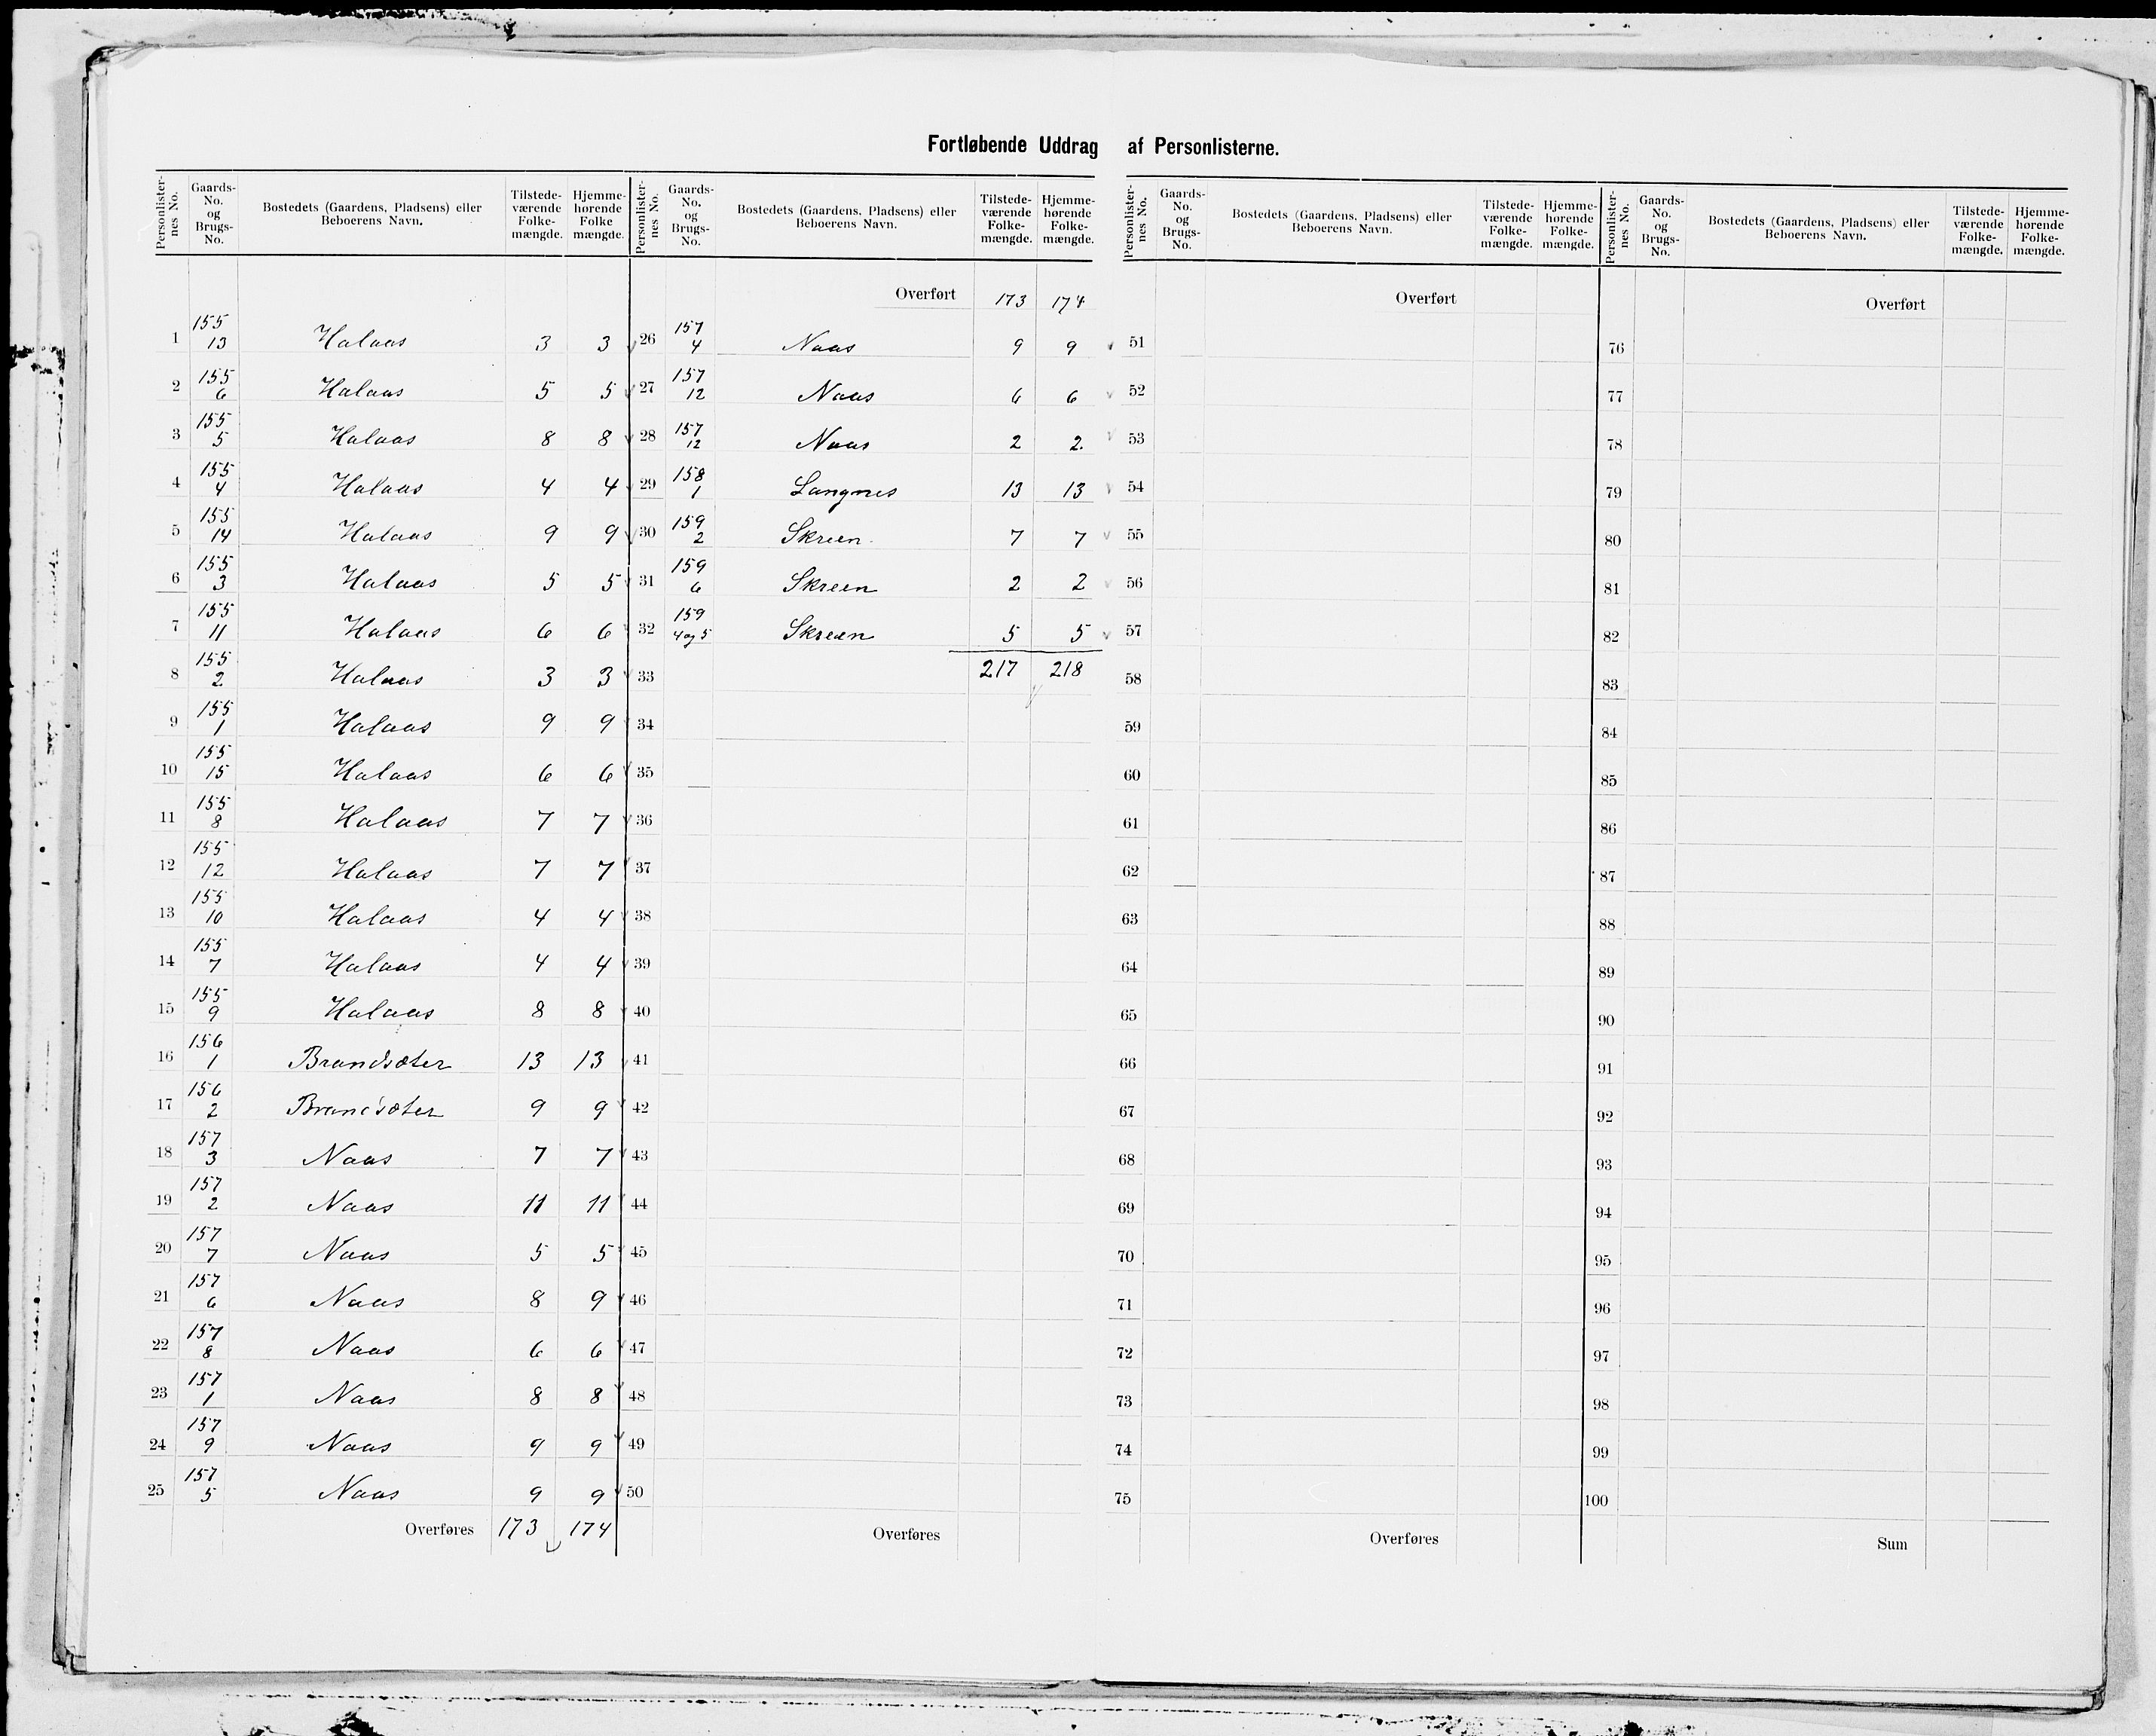 Fortløbende Uddrag af Personlisterne.
Personlister-nes No. | Gaards-No. og Brugs-No. | Bostedets (Gaardens, Pladsens) eller Beboerens Navn. | Tilstede-værende Folke-mængde. | Hjemme-hørende Folke mængde.
1 | 155 13 | Halaas | 3 | 3
2 | 155 6 | Halaas | 5 | 5
3 | 155 5 | Halaas | 8 | 8
4 | 155 4 | Halaas | 4 | 4
5 | 155 14 | Halaas | 9 | 9
6 | 155 3 | Halaas | 5 | 5
7 | 155 11 | Halaas | 6 | 6
8 | 155 2 | Halaas | 3 | 3
9 | 155 1 | Halaas | 9 | 9
10 | 155 15 | Halaas | 6 | 6
11 | 155 8 | Halaas | 7 | 7
12 | 155 12 | Halaas | 7 | 7
13 | 155 10 | Halaas | 4 | 4
14 | 155 7 | Halaas | 4 | 4
15 | 155 9 | Halaas | 8 | 8
16 | 156 1 | Brandsæter | 13 | 13
17 | 156 2 | Brandsæter | 9 | 9
18 | 157 3 | Naas | 7 | 7
19 | 157 2 | Naas | 11 | 11
20 | 157 7 | Naas | 5 | 5
21 | 157 6 | Naas | 8 | 9
22 | 157 8 | Naas | 6 | 6
23 | 157 1 | Naas | 8 | 8
24 | 157 9 | Naas | 9 | 9
25 | 157 5 | Naas | 9 | 9
Overføres | 173 | 174
Personlister-nes No. | Gaards-No. og Brugs-No. | Bostedets (Gaardens, Pladsens) eller Beboerens Navn. | Tilstede-værende Folke-mængde. | Hjemme-hørende Folke-mængde.
Overført | 173 | 174
26 | 157 4 | Naas | 9 | 9
27 | 157 12 | Naas | 6 | 6
28 | 157 12 | Naas | 2 | 2.
29 | 158 1 | Langnes | 13 | 13
30 | 159 2 | Skreen | 7 | 7
31 | 159 6 | Skreen | 2 | 2
32 | 159 4 og 5 | Skreen | 5 | 5
33 | 217 | 218
34
35
36
37
38
39
40
41
42
43
44
45
46
47
48
49
50
Overføres
Personlister-nes No. | Gaards-No. og Brugs-No. | Bostedets (Gaardens, Pladsens) eller Beboerens Navn. | Tilstede-værende Folke-mængde. | Hjemme-hørende Folke-mængde.
Overført
51
52
53
54
55
56
57
58
59
60
61
62
63
64
65
66
67
68
69
70
71
72
73
74
75
Overføres
Personlister-nes No. | Gaards-No. og Brugs-No. | Bostedets (Gaardens, Pladsens) eller Beboerens Navn. | Tilstede-værende Folke-mængde. | Hjemme-hørende Folke-mængde.
Overført
76
77
78
79
80
81
82
83
84
85
86
87
88
89
90
91
92
93
94
95
96
97
98
99
100
Sum